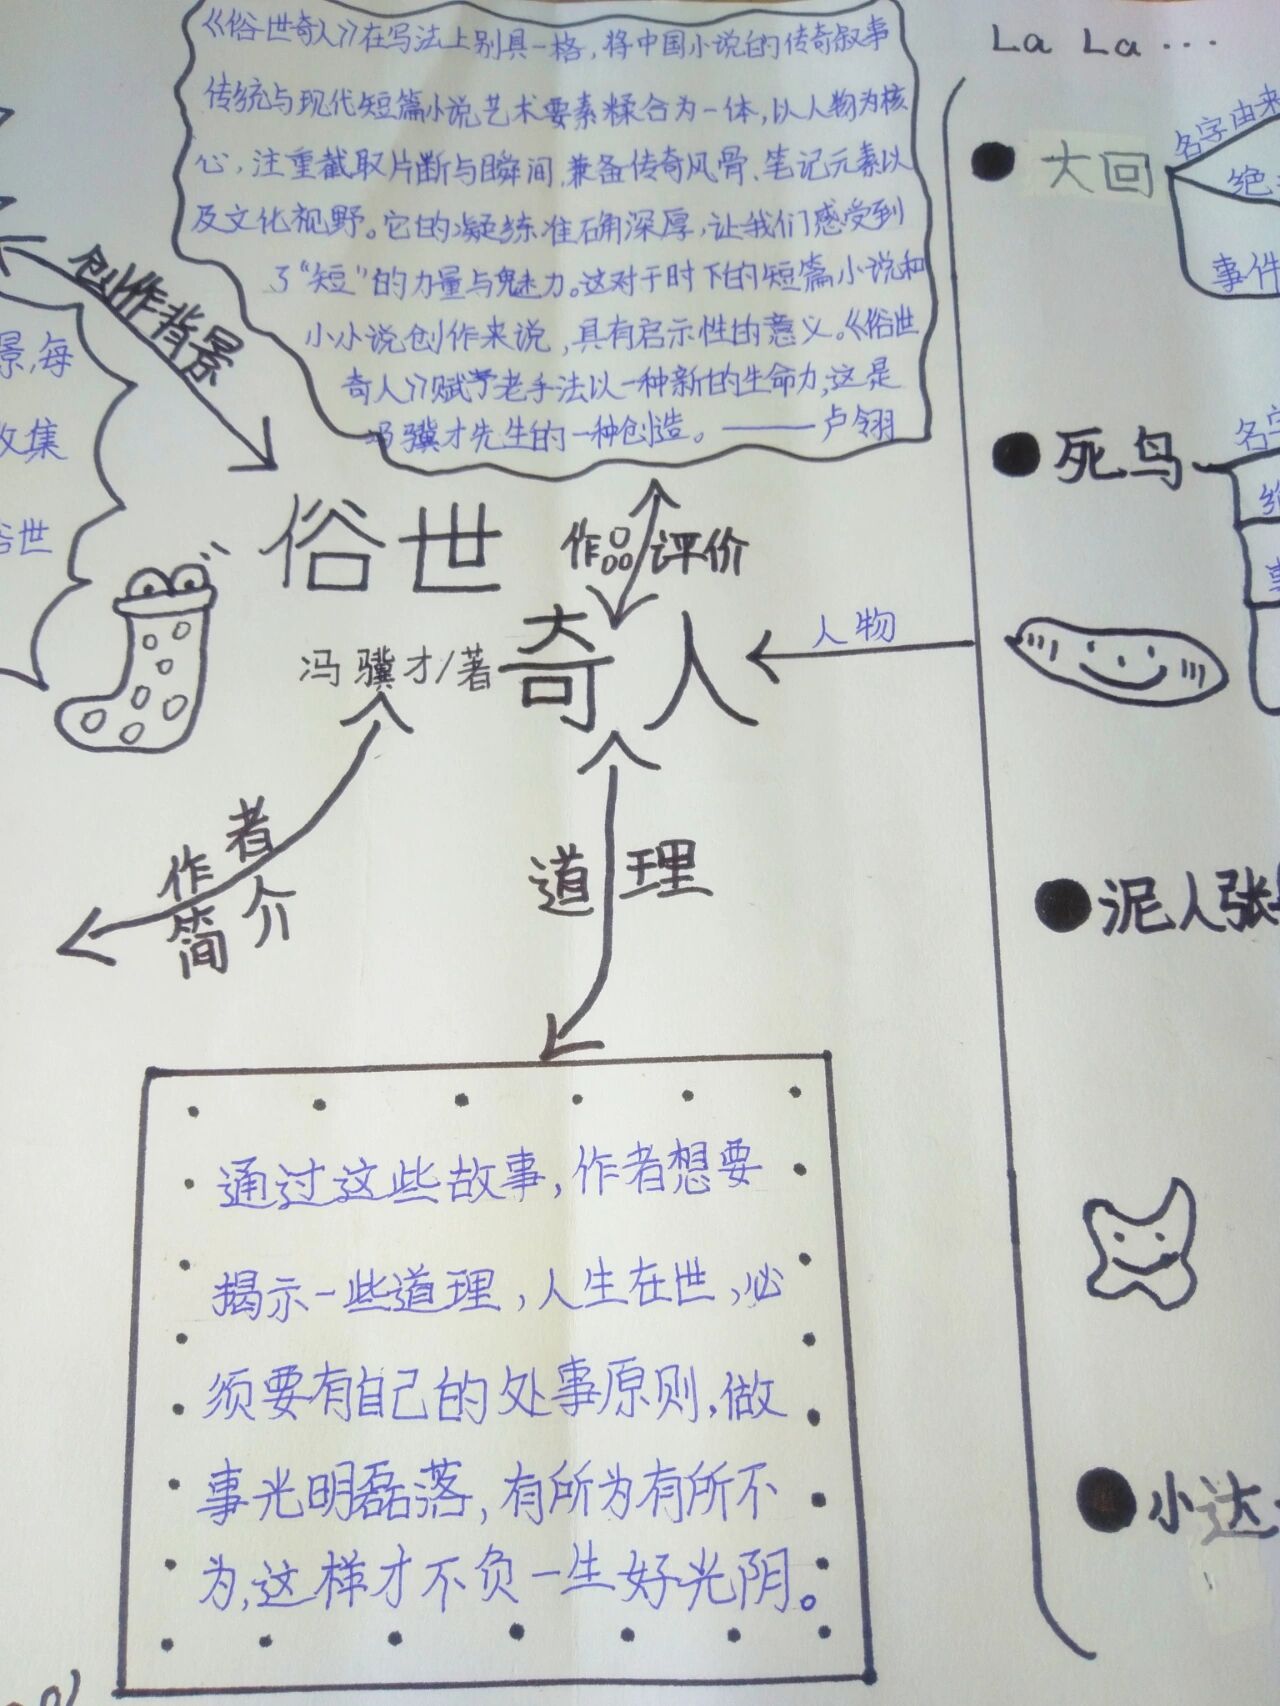 《俗世奇人》在写法上别具一格，将中国小说的传奇叙事
传统与现代短篇小说艺术要素糅合为一体，以人物为核
心，注重截取片断与瞬间，兼备传奇风骨、笔记元素以
及文化视野。它的凝练准确深厚，让我们感受到
了“短”的力量与魅力。这对于时下的短篇小说和
小小说创作来说，具有启示性的意义。《俗世
奇人》赋予老手法以一种新的生命力，这是
冯骥才先生的一种创造。——卢翎
La La ...
大回
名字由来
绝
事件
创作背景
景，每
收集
俗世
俗世
奇人
冯骥才/著
作品评价
人物
死鸟
名字
作者
简介
道理
泥人张
小达
通过这些故事，作者想要
揭示一些道理，人生在世，必
须要有自己的处事原则，做
事光明磊落，有所为有所不
为，这样才不负一生好光阴。